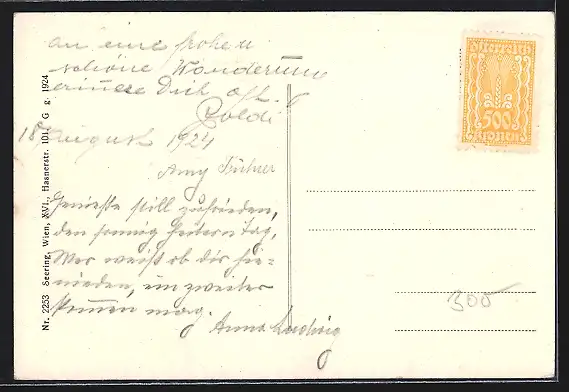 an eine frohe u
schöne Wanderung
erinnere Dich oft
Poldi
18. August 1924
Amy
Genieße still zufrieden,
den sonnig heitern Tag,
Wer weiß ob dir hie-
nieden, ein zweiter
kommen mag.
Anna Ludwig
Nr. 2253 Seering, Wien, XVI., Hasnerstr. 101. G g. 1924
Österreich
500
Kronen
300